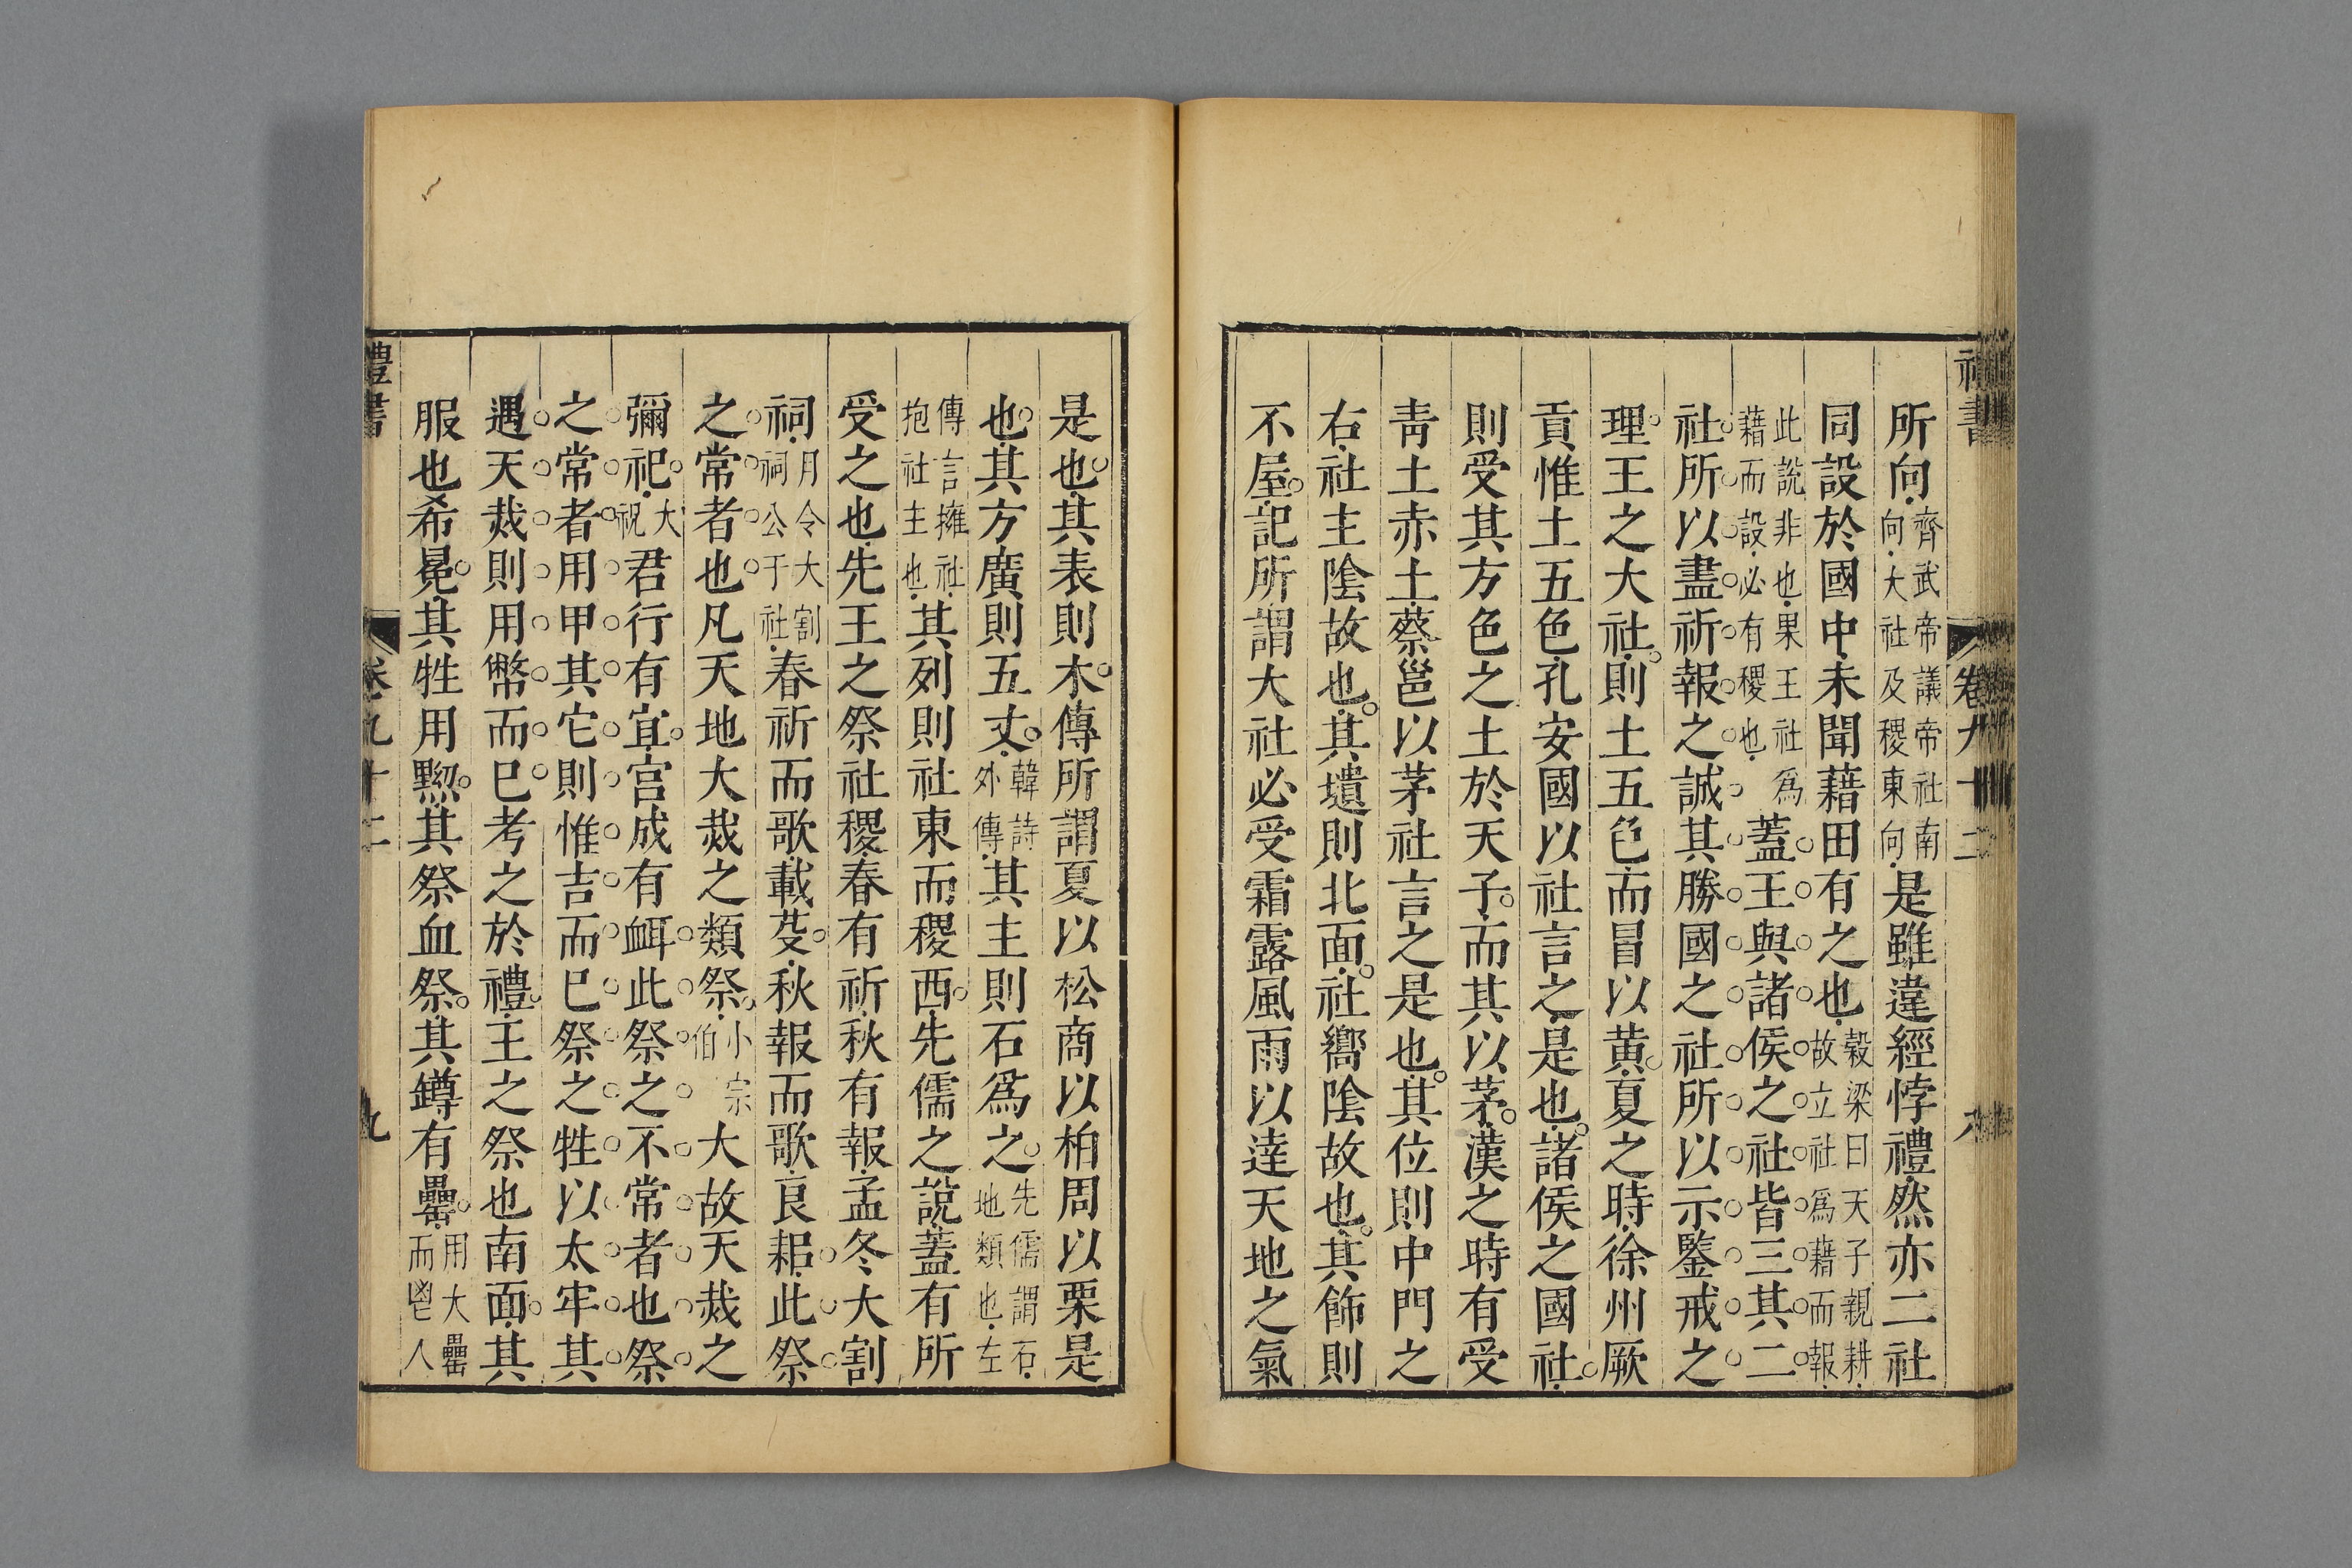 禮書 卷九十二
所向齊武帝議帝社南向大社及稷東向是雖違經悖禮然亦二社
同設於國中未聞藉田有之也穀梁曰天子親耕故立社爲藉而報
此說非也果王社爲藉而設必有稷也蓋王與諸侯之社皆三其二
社所以盡祈報之誠其勝國之社所以示鑒戒之
理王之大社則土五色而冒以黃夏之時徐州厥
貢惟土五色孔安國以社言之是也諸侯之國社
則受其方色之土於天子而其以茅漢之時有受
靑土赤土蔡邕以茅社言之是也其位則中門之
右社主陰故也其壝則北面社嚮陰故也其飾則
不屋記所謂大社必受霜露風雨以達天地之氣
是也其表則木傳所謂夏以松商以柏周以栗是
也其方廣則五丈韓詩外傳其主則石爲之先儒謂石地類也左
傳言擁社抱社主也其列則社東而稷西先儒之說蓋有所
受之也先王之祭社稷春有祈秋有報孟冬大割
祠月令大割祠公于社春祈而歌載芟秋報而歌良耜此祭
之常者也凡天地大烖之類祭小宗伯大故天烖之
彌祀大祝君行有宜宮成有衈此祭之不常者也祭
之常者用甲其它則惟吉而巳祭之牲以太牢其
遇天烖則用幣而巳考之於禮王之祭也南面其
服也希冕其牲用黝其祭血祭其罇有罍用大罍而鬯人
禮書 卷九十二 九